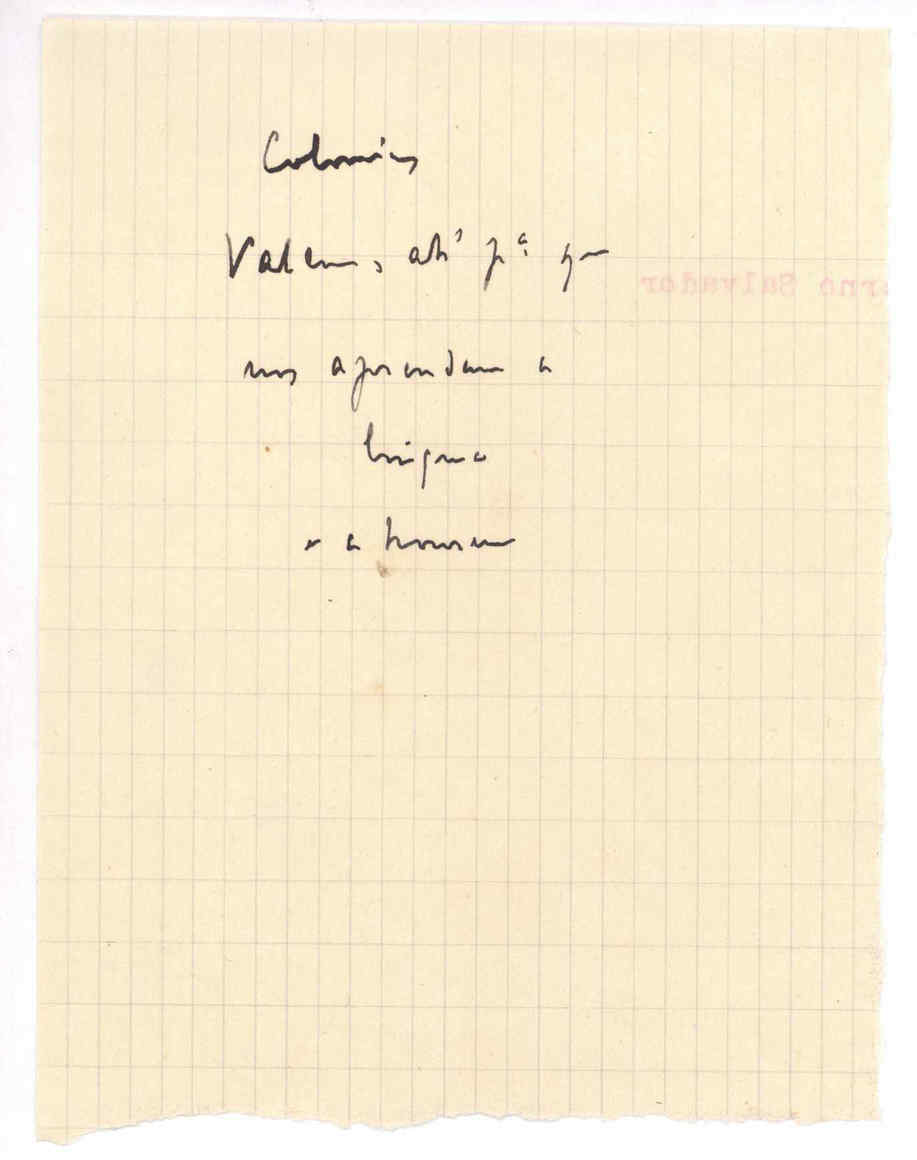 Colonias
Valemos até p.ª que
nos aprendam a
lingua
e a honrem
erno Salvador